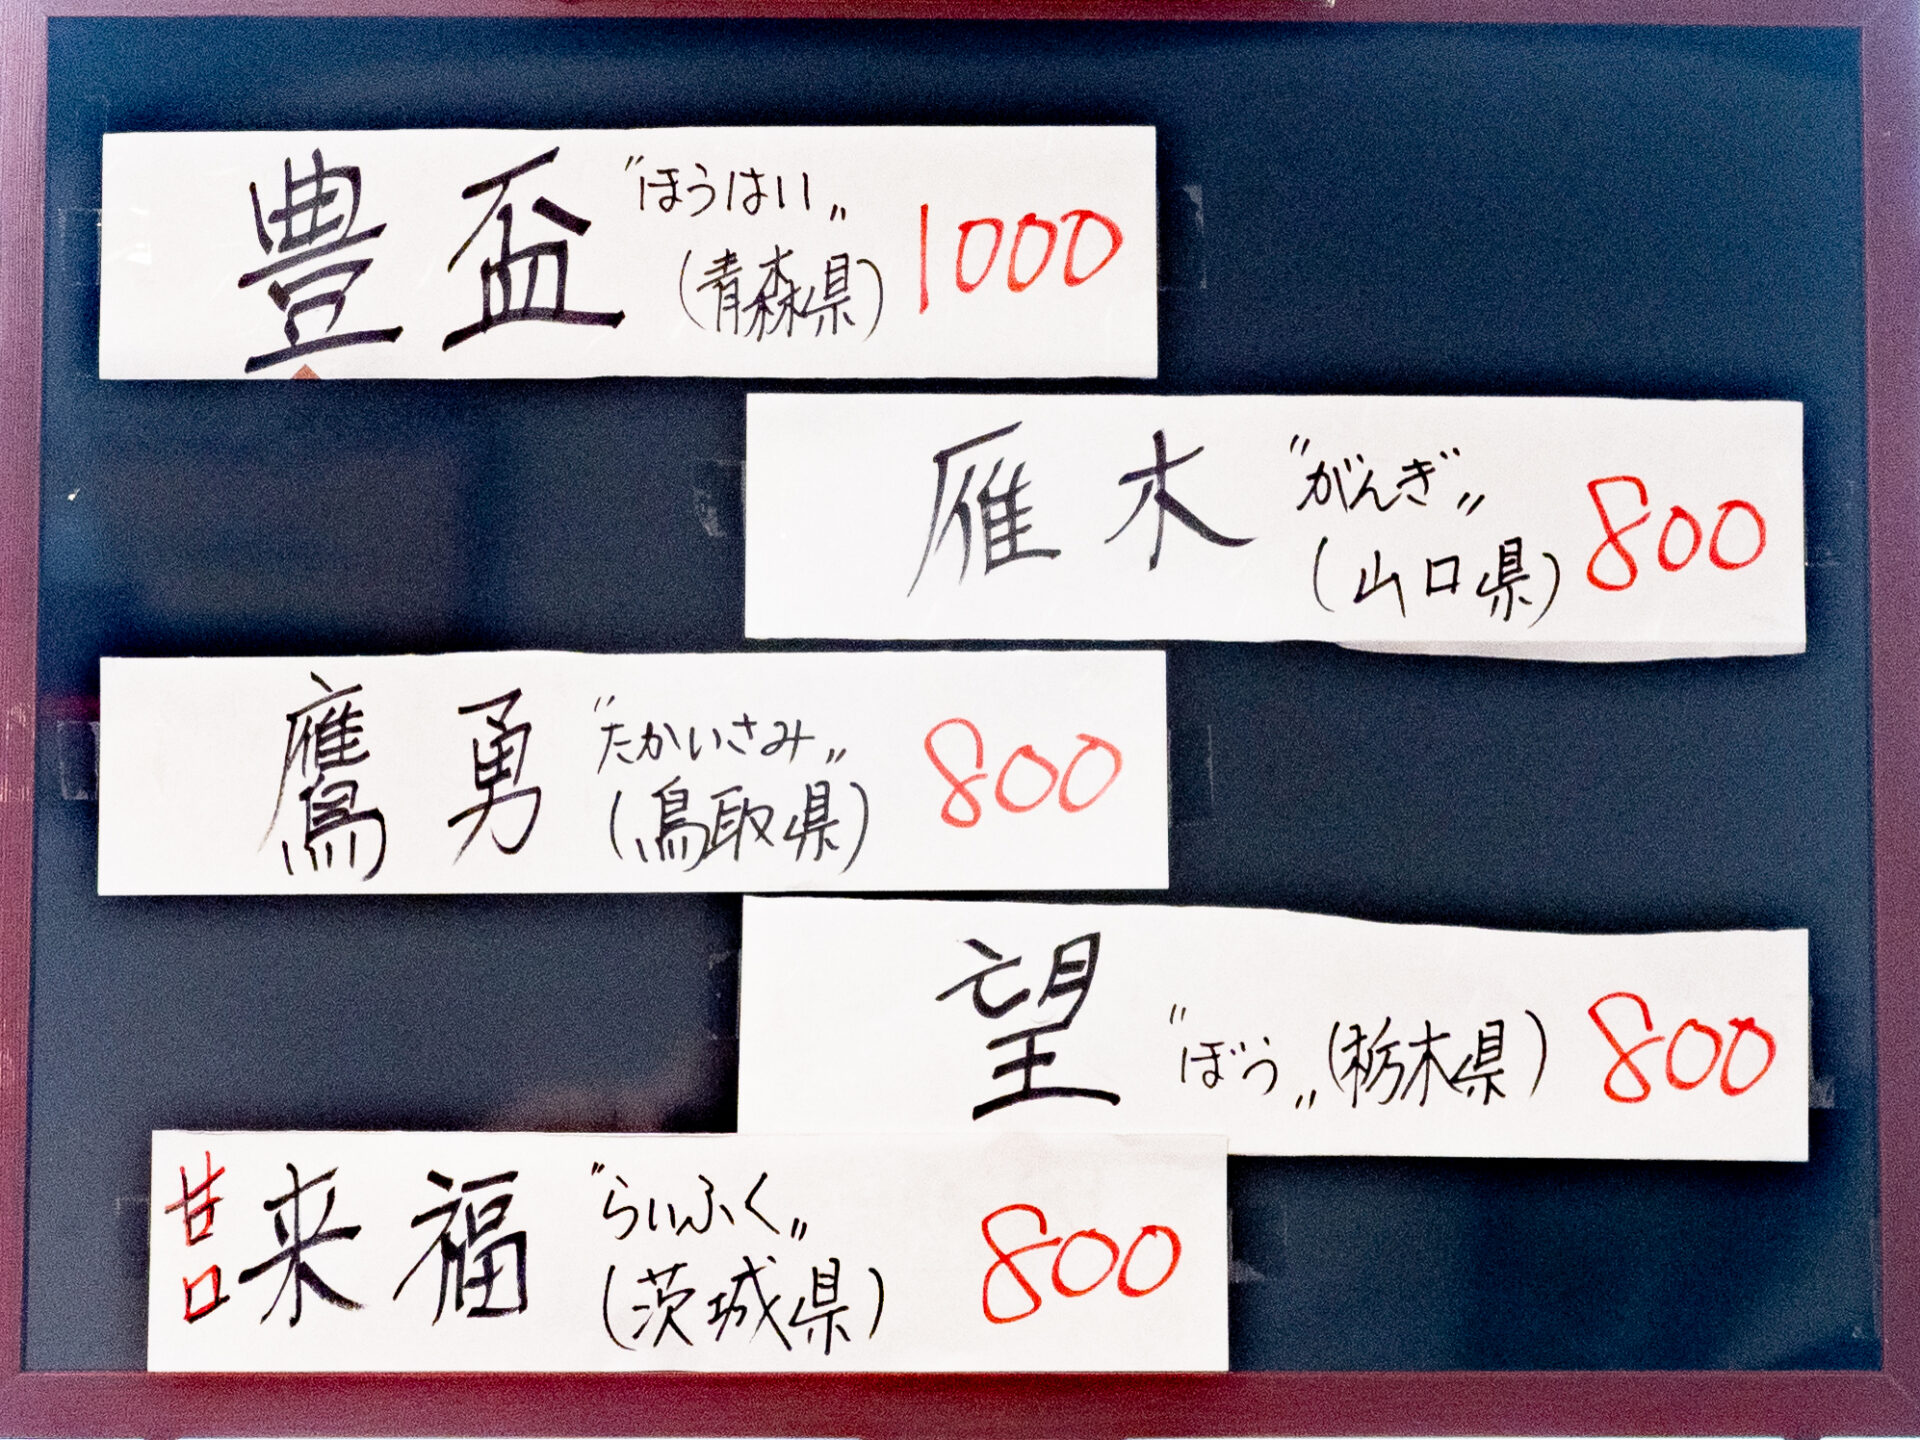 豊盃 "ほうはい" (青森県) 1000
雁木 "がんぎ" (山口県) 800
鷹勇 "たかいさみ" (鳥取県) 800
望 "ぼう" (栃木県) 800
甘口 来福 "らいふく" (茨城県) 800